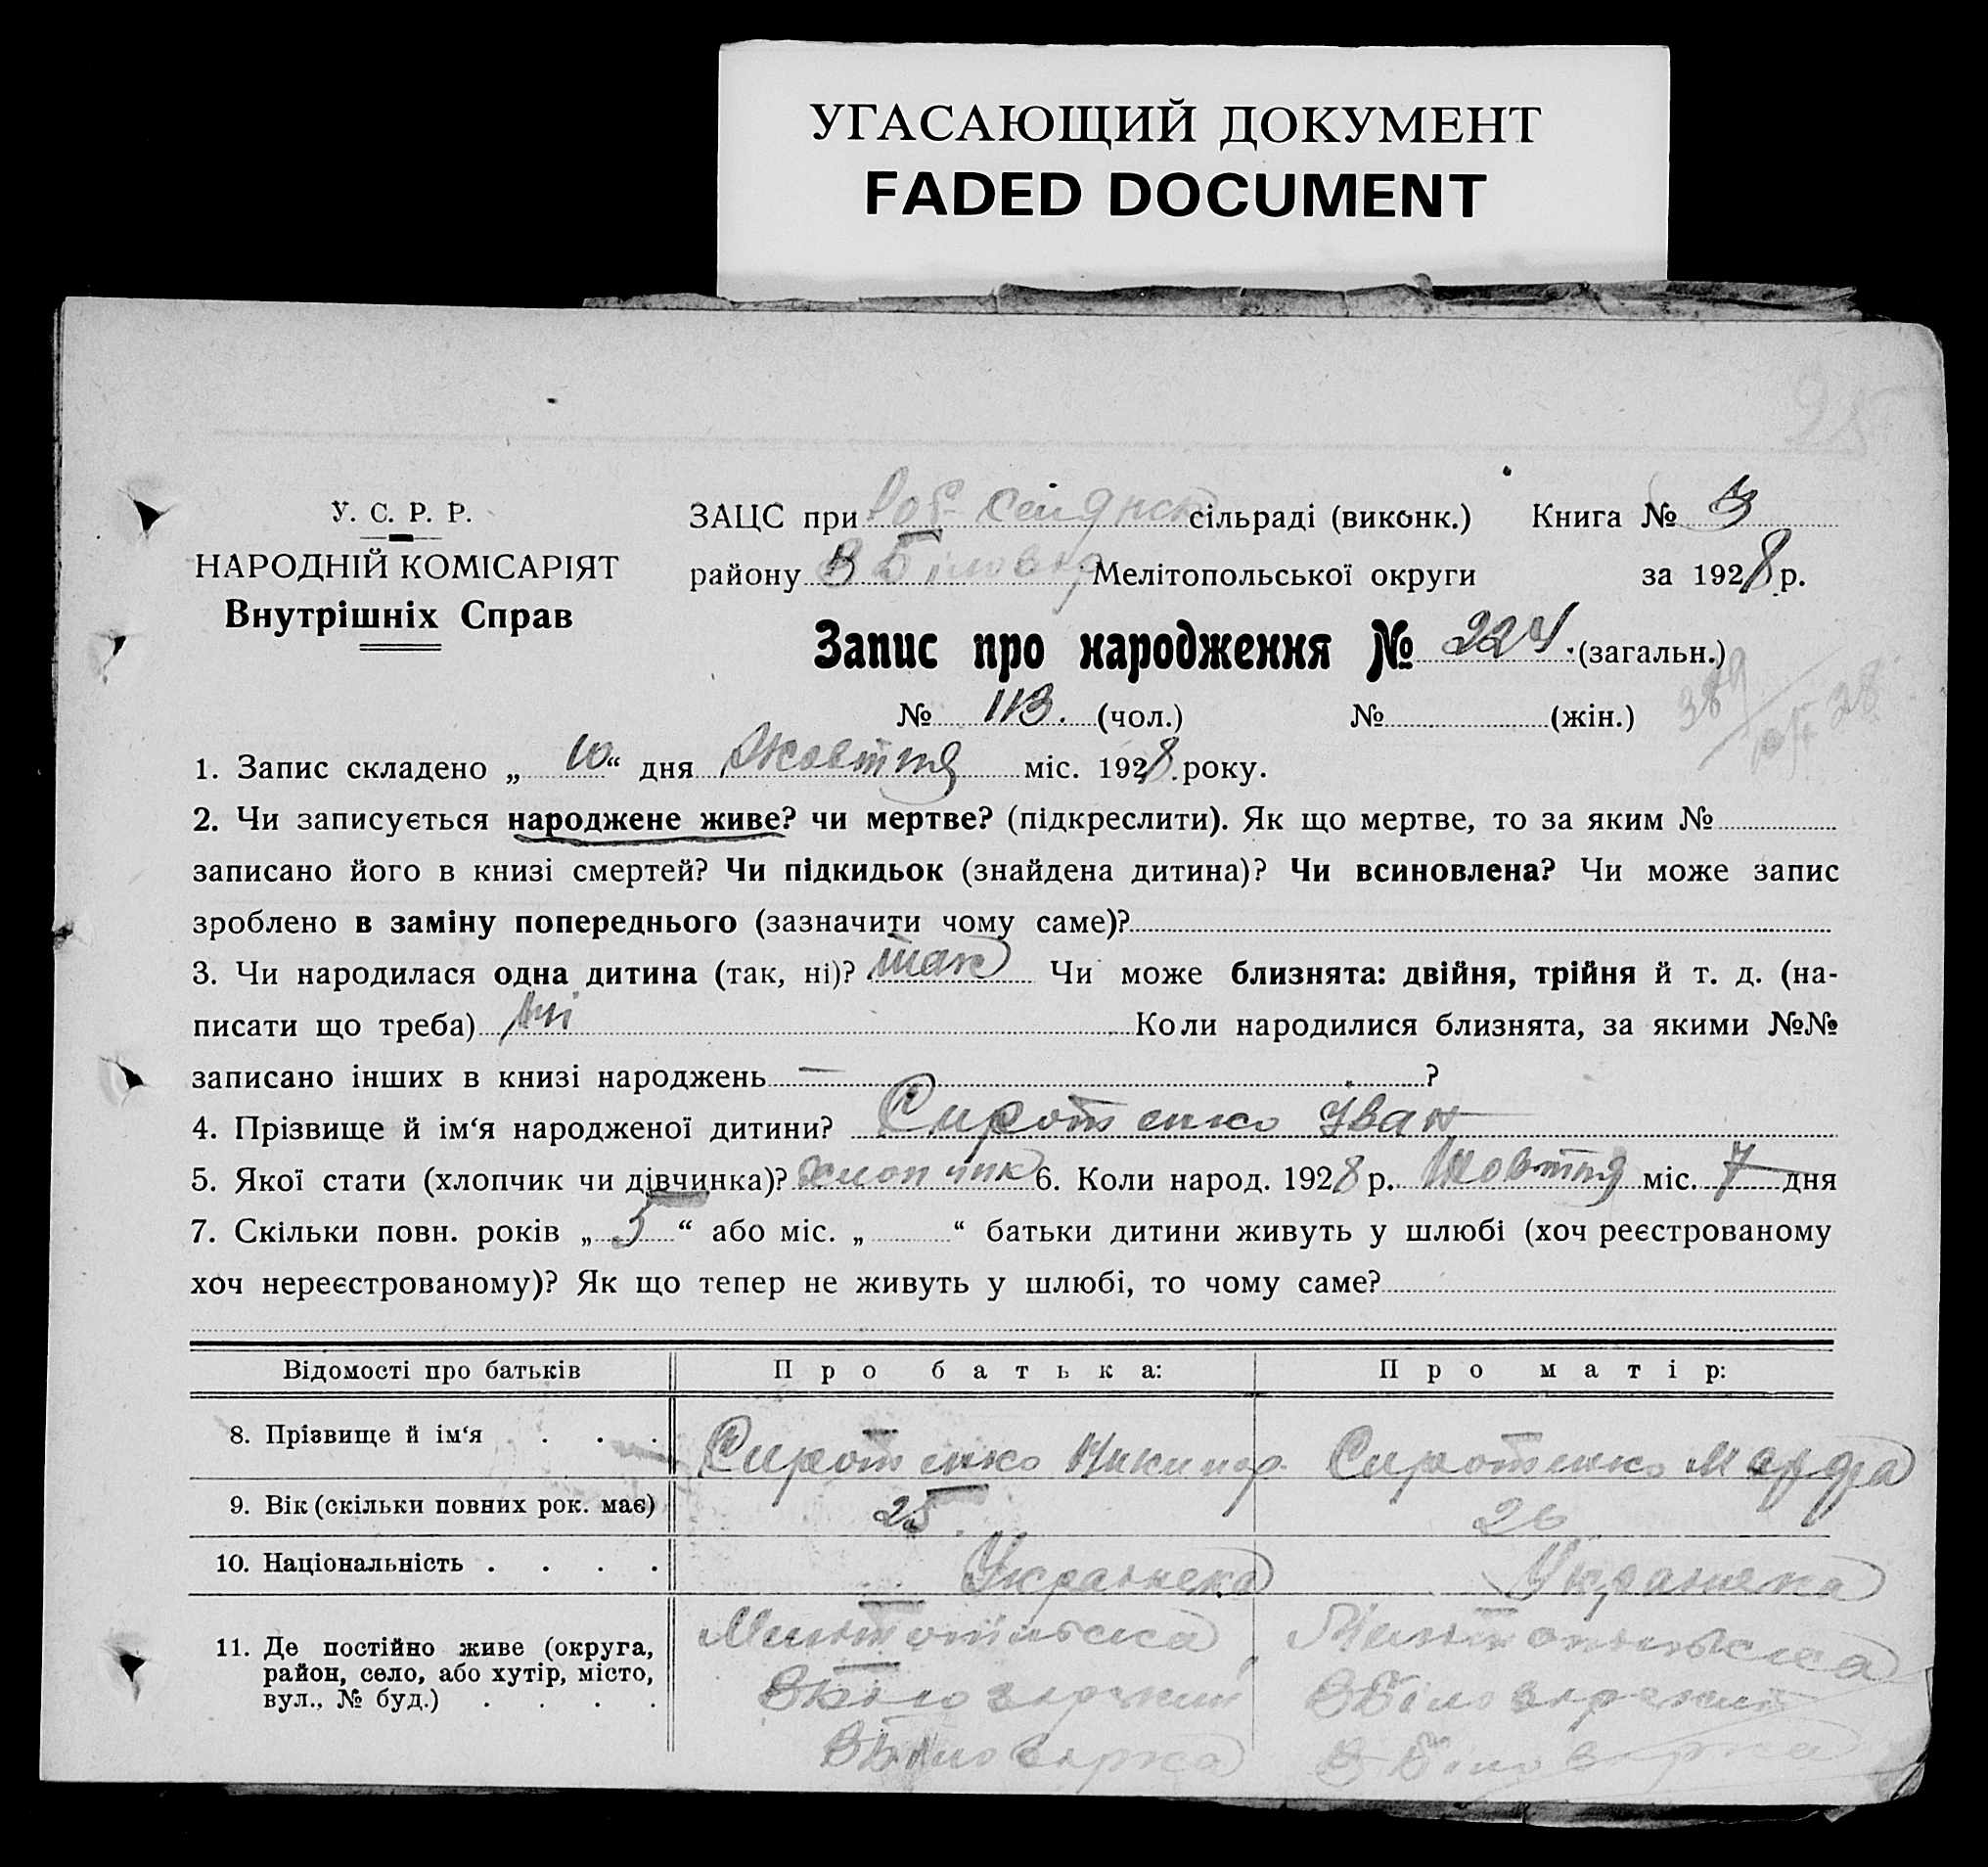 УГАСАЮЩИЙ ДОКУМЕНТ
FADED DOCUMENT
25
У. С. Р. Р.
НАРОДНІЙ КОМІСАРІЯТ
Внутрішніх Справ
ЗАЦС при сільраді (виконк.) Книга № 3
району В Біловер Мелітопольської округи за 1928 р.
Запис про народження № 224 (загальн.)
№ 113. (чол.) № (жін.)
1. Запис складено „ 10 “ дня Жовтня міс. 1928 року.
2. Чи записується народжене живе? чи мертве? (підкреслити). Як що мертве, то за яким №
записано його в книзі смертей? Чи підкидьок (знайдена дитина)? Чи всиновлена? Чи може запис
зроблено в заміну попереднього (зазначити чому саме)?
3. Чи народилася одна дитина (так, ні)? так Чи може близнята: двійня, трійня й т. д. (на-
писати що треба) ні Коли народилися близнята, за якими №№
записано інших в книзі народжень — ?
4. Прізвище й ім‘я народженої дитини? Сиротенко Іван
5. Якої стати (хлопчик чи дівчинка)? хлопчик 6. Коли народ. 1928 р. Жовтня міс. 7 дня
7. Скільки повн. років „ 5 “ або міс. „ “ батьки дитини живуть у шлюбі (хоч реєстрованому
хоч нереєстрованому)? Як що тепер не живуть у шлюбі, то чому саме?
Відомості про батьків Про батька: Про матір:
8. Прізвище й ім‘я . . . Сиротенко Никипор. Сиротенко Марфа
9. Вік (скільки повних рок. має) 25 26
10. Національність . . . . Українська Українка
11. Де постійно живе (округа, Мелітопільська Мелітопільська
район, село, або хутір, місто, В Біловерський В Біловерський
вул., № буд.) . . . . В Біловерка В Біловерка